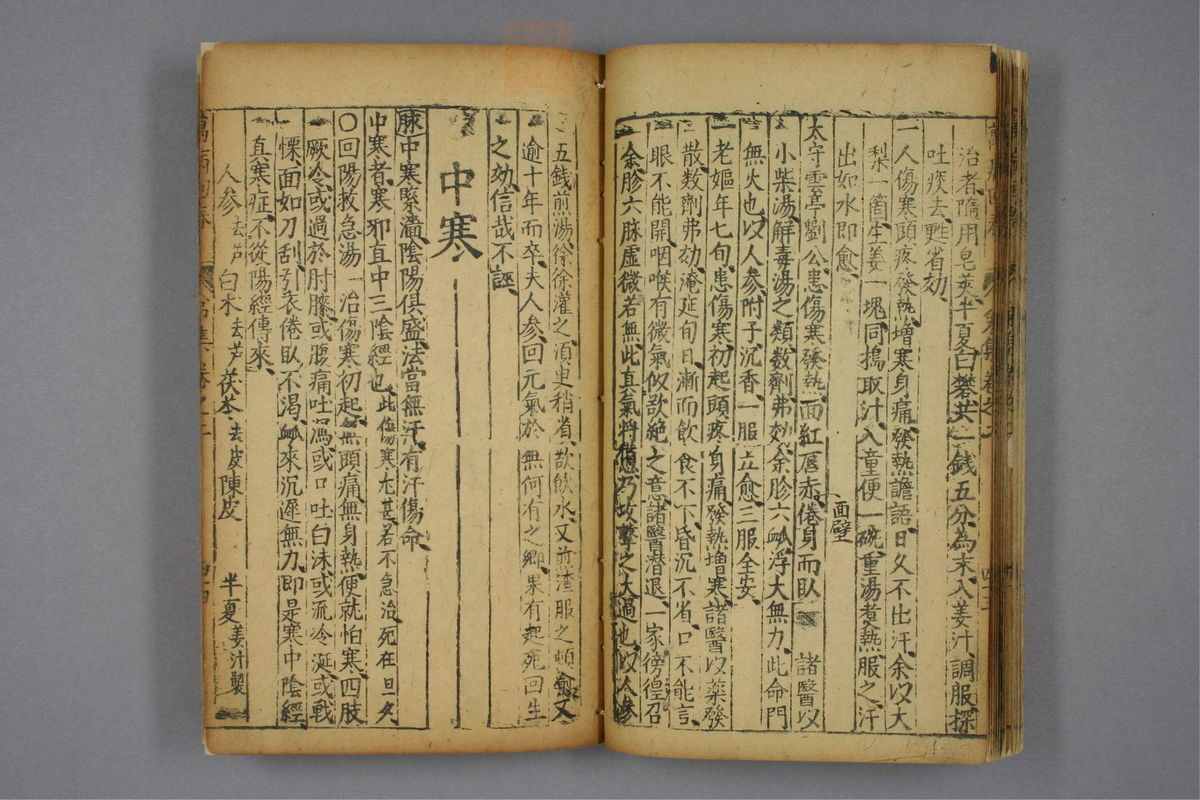 治者隋用皂莢半夏白礬共一錢五分為末入姜汁調服探
吐痰去甦省効
一人傷寒頭疼發熱增寒身痛發熱譫語日久不出汗余以大
梨一箇生姜一塊同搗取汁入童便一碗重湯煮熱服之汗
出如水即愈
太守雲亭劉公患傷寒發熱面紅唇赤面壁倦身而臥諸醫以
小柴湯解毒湯之類数劑弗効余胗六脉浮大無力此命門
無火也以人參附子沉香一服立愈三服全安
一老嫗年七旬患傷寒初起頭疼身痛發熱增寒諸醫以藥發
散数劑弗効淹延旬日漸而飲食不下昏沉不省口不能言
眼不能開咽喉有微氣似欲絶之意諸醫潜退一家徬徨召
余胗六脉虛微若無此真氣将憊乃攻擊之大過也以人參
五錢煎湯徐徐灌之湏臾稍省欲飲水又煎渣服之頓愈又
逾十年而卒夫人參回元氣於無何有之鄉果有起死回生
之効信哉不誣
中寒
脉中寒緊濇陰陽俱盛法當無汗有汗傷命
中寒者寒邪直中三陰經也此傷寒尤甚若不急治死在旦夕
〇回陽救急湯 一治傷寒初起無頭痛無身熱便就怕寒四肢
厥冷或過於肘膝或腹痛吐瀉或口吐白沫或流冷涎或戰
慄面如刀刮引衣倦臥不渴脉來沉遲無力即是寒中陰經
直寒症不從陽經傳來
人參去芦 白朮去芦 茯苓去皮 陳皮 半夏姜汁製